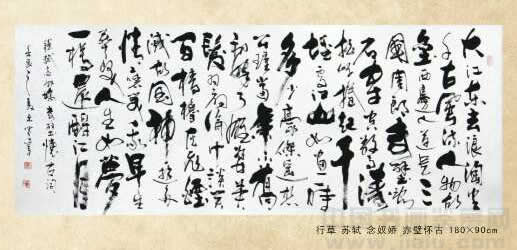 大江东去浪淘尽
千古风流人物故
垒西边人道是三
国周郎赤壁乱
石穿空惊涛
拍岸卷起千
堆雪江山如画一时
多少豪杰遥想
公瑾当年小乔
初嫁了雄姿英
发羽扇纶巾谈笑
间樯橹灰飞烟
灭故国神游多
情应笑我早生
华发人生如梦
一樽还酹江月
行草 苏轼 念奴娇 赤壁怀古 180×90cm